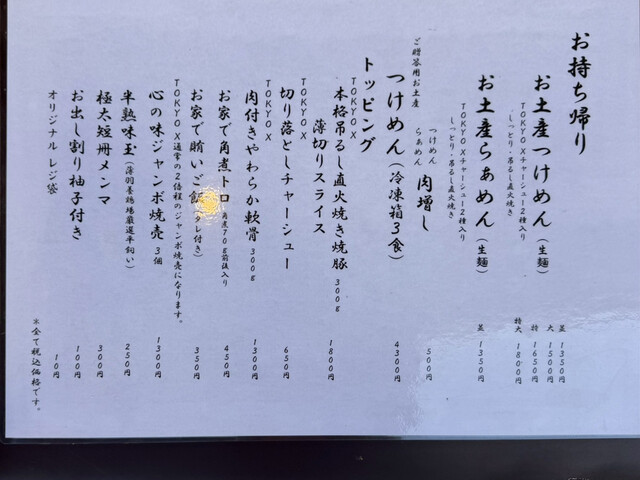 お持ち帰り
お土産つけめん（生麺）
TOKYO Xチャーシュー2種入り
しっとり・吊るし直火焼き
並 1350円
大 1500円
特 1650円
特大 1800円
お土産らぁめん（生麺）
TOKYO Xチャーシュー2種入り
しっとり・吊るし直火焼き
並 1350円
つけめん
らぁめん 肉増し 500円
ご贈答用お土産
つけめん（冷凍箱3食） 4300円
トッピング
TOKYO X
本格吊るし直火焼き焼豚 300g 1800円
薄切りスライス
TOKYO X
切り落としチャーシュー 650円
TOKYO X
肉付きやわらか軟骨 300g 1300円
お家で角煮トロ 角煮70g前後入り 450円
お家で賄いご飯（タレ付き） 350円
TOKYO X通常の2倍程のジャンボ焼売になります。
心の味ジャンボ焼売 3個 1300円
半熟味玉（薄羽養鶏場厳選平飼い） 250円
極太短冊メンマ 300円
お出し割り柚子付き 100円
オリジナル レジ袋 10円
※全て税込価格です。